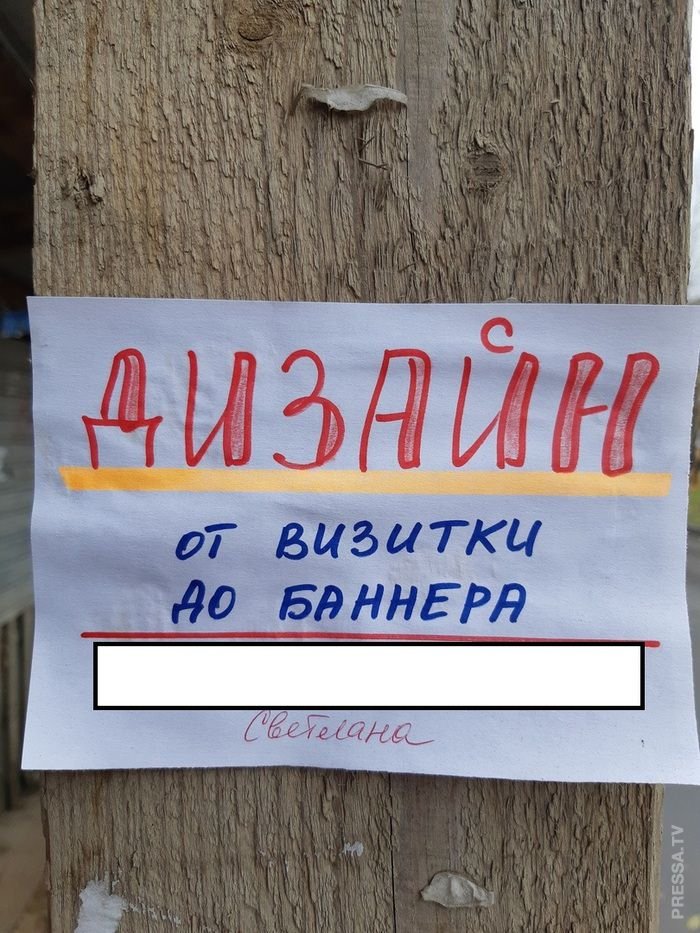 ДИЗАЙН
от ВИЗИТКИ
ДО БАННЕРА
Светлана
PRESSA.TV